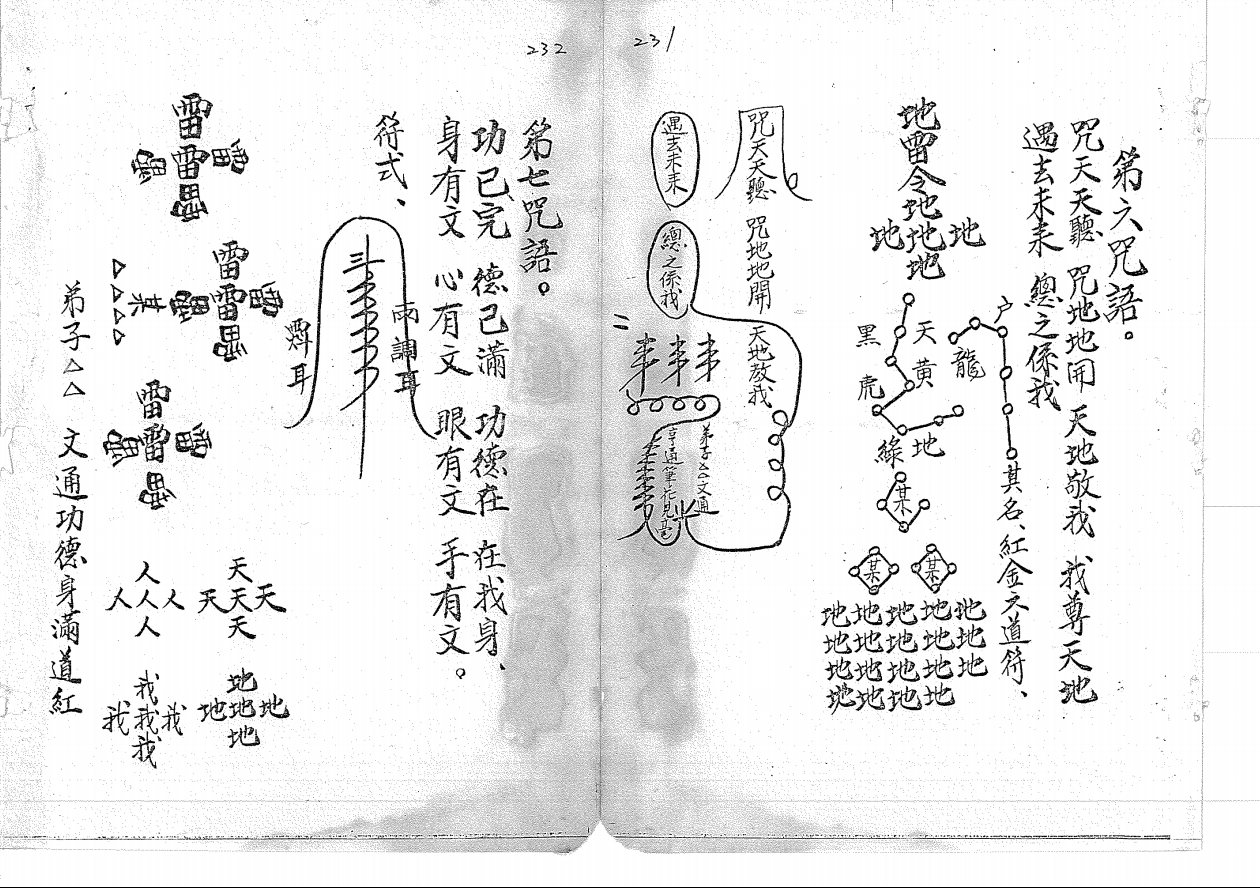 231
第六咒語。
咒天天聽 咒地地開 天地敬我 我尊天地
過去未來 總之係我
其名、紅金文道符、
天黃龍
黑虎
綠地
某
某 某
地雷令地
地地地
地
地地地地地
地地地地地
地地地地地
地地地地
咒天天聽 咒地地開 天地敬我
過去未來 總之係我
弟子△△文通
亨通筆花見毫
232
第七咒語。
功已完 德已滿 功德在 在我身、
身有文 心有文 眼有文 手有文。
符式、
雨調耳
耳
雷
雷雷雷
雷
雷
雷雷雷
雷
某
△△△△
雷
雷雷雷
雷
天
天天天
天
人
人人人
人
地
地地地
地
我
我我我
我
弟子△△ 文通功德身滿道紅